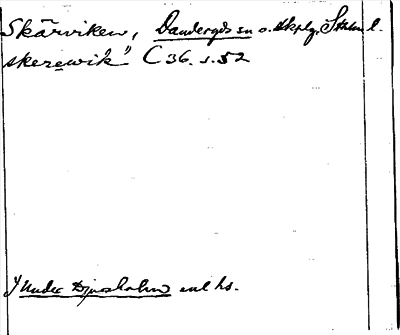 Skärviken, Danderyds sn o. skplg. Sthlm l.
skerewik" C 36. s. 52
Under Djursholm enl hs.